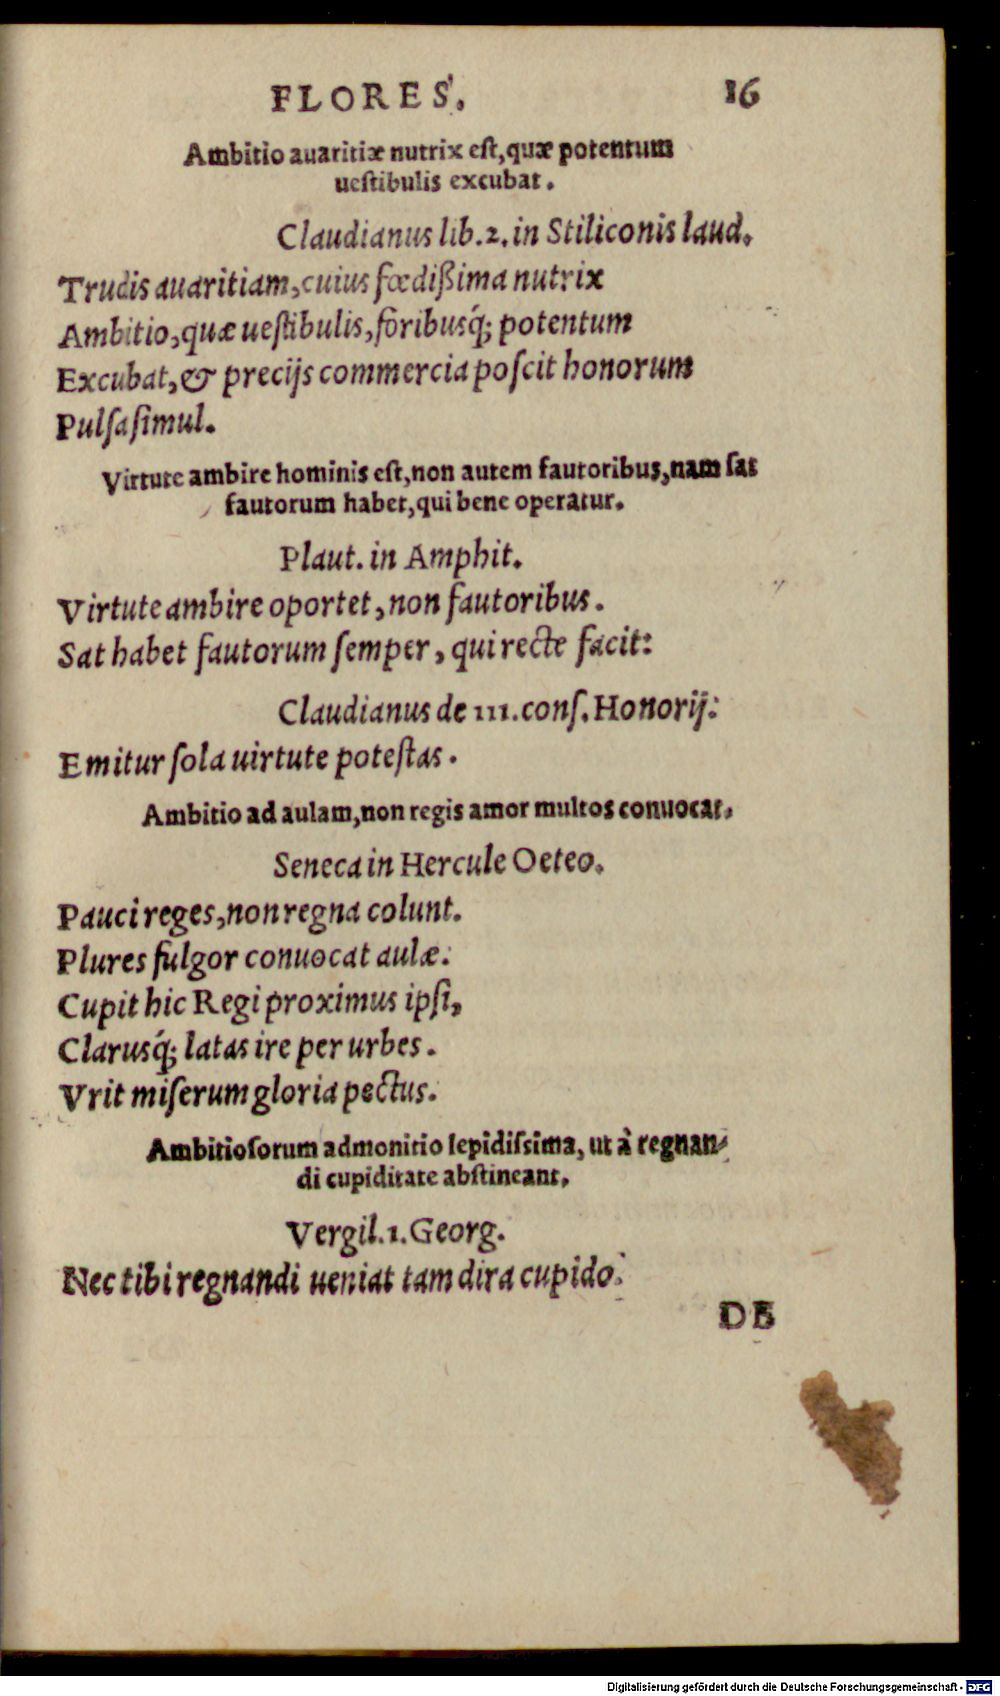 FLORES. 16
Ambitio auaritiæ nutrix est, quæ potentum
uestibulis excubat.
Claudianus lib. 2. in Stiliconis laud.
Trudis auaritiam, cuius fœdißima nutrix
Ambitio, quæ uestibulis, foribusq́; potentum
Excubat, & precijs commercia poscit honorum
Pulsa simul.
Virtute ambire hominis est, non autem fautoribus, nam sat
fautorum habet, qui bene operatur.
Plaut. in Amphit.
Virtute ambire oportet, non fautoribus.
Sat habet fautorum semper, qui recte facit:
Claudianus de III. cons. Honorij:
Emitur sola uirtute potestas.
Ambitio ad aulam, non regis amor multos conuocat.
Seneca in Hercule Oeteo.
Pauci reges, non regna colunt.
Plures fulgor conuocat aulæ:
Cupit hic Regi proximus ipsi,
Clarusq́; latas ire per urbes.
Vrit miserum gloria pectus.
Ambitiosorum admonitio lepidissima, ut à regnan-
di cupiditate abstineant.
Vergil. 1. Georg.
Nec tibi regnandi ueniat tam dira cupido.
DE
Digitalisierung gefördert durch die Deutsche Forschungsgemeinschaft - DFG